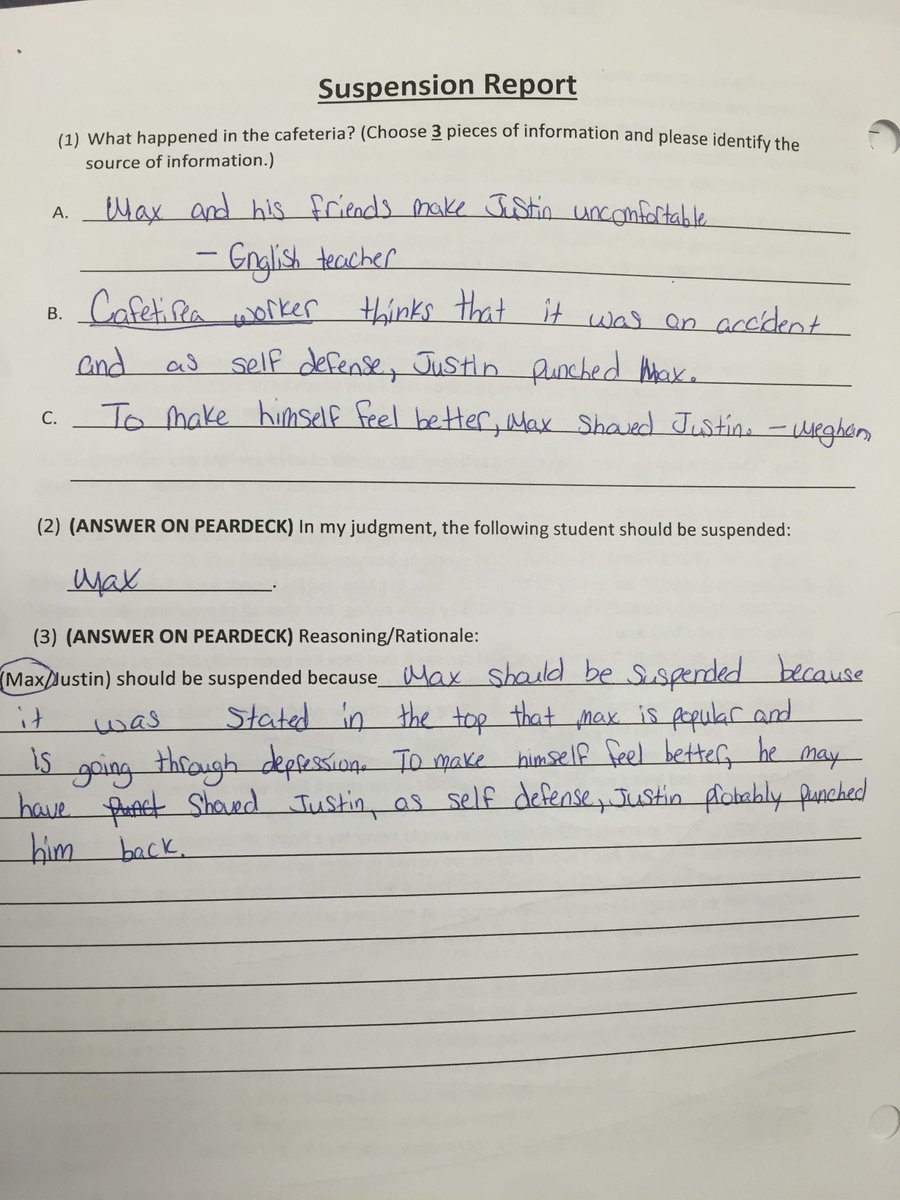 Suspension Report
(1) What happened in the cafeteria? (Choose 3 pieces of information and please identify the
source of information.)
A. Max and his friends make Justin uncomfortable
- English teacher
B. Cafetirea worker thinks that it was an accident
and as self defense, Justin punched Max.
C. To make himself feel better, Max Shoved Justin. - Meghan
(2) (ANSWER ON PEARDECK) In my judgment, the following student should be suspended:
Max.
(3) (ANSWER ON PEARDECK) Reasoning/Rationale:
(Max/Justin) should be suspended because Max should be suspended because
it was stated in the top that max is popular and
is going through depression. To make himself feel better, he may
have Punct Shoved Justin, as self defense, Justin probably punched
him back.